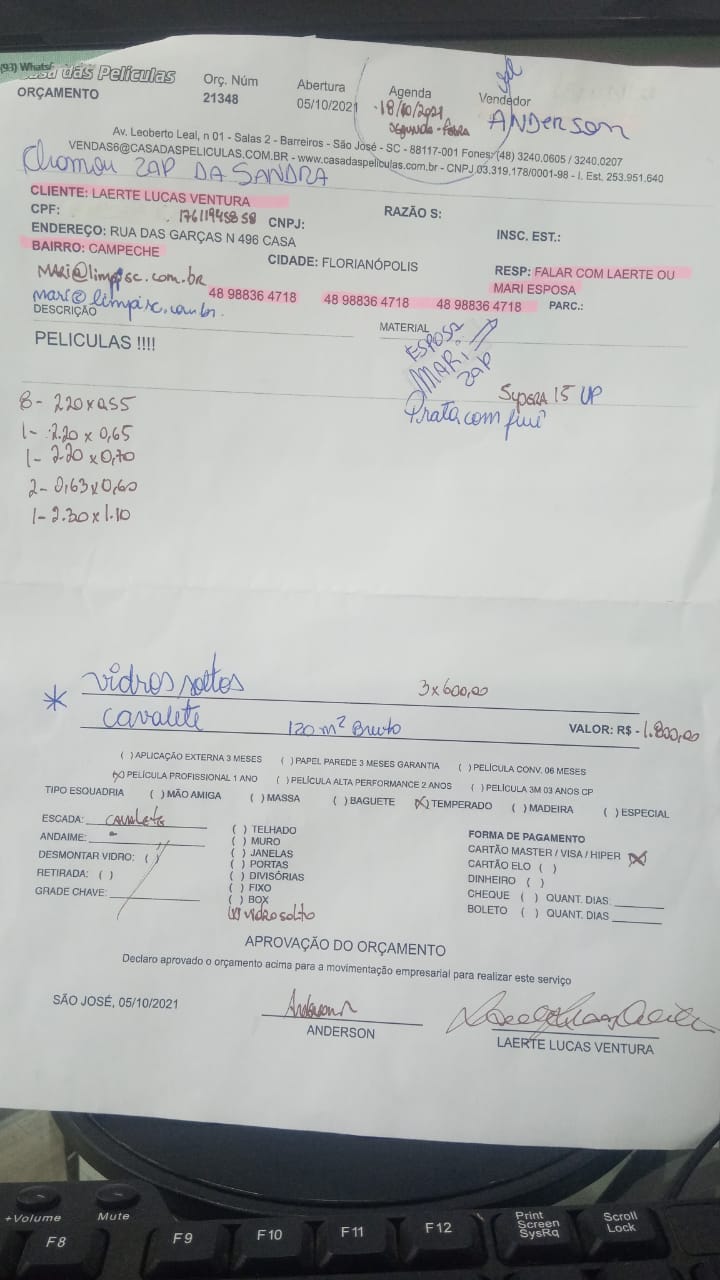 (93) Whats
Casa das Películas
ORÇAMENTO
Orç. Núm
21348
Abertura
05/10/2021
Agenda
18/10/2021
SEGUNDA-FEIRA
Vendedor
ANDERSON
Av. Leoberto Leal, n 01 - Salas 2 - Barreiros - São José - SC - 88117-001 Fones: (48) 3240.0605 / 3240.0207
VENDAS6@CASADASPELICULAS.COM.BR - www.casadaspeliculas.com.br - CNPJ 03.319.178/0001-98 - I. Est. 253.951.640
Chamou ZAP DA SANDRA
CLIENTE: LAERTE LUCAS VENTURA
RAZÃO S:
CPF: 17611945858 CNPJ:
INSC. EST.:
ENDEREÇO: RUA DAS GARÇAS N 496 CASA
BAIRRO: CAMPECHE
CIDADE: FLORIANÓPOLIS
RESP: FALAR COM LAERTE OU
MARI ESPOSA
MARI@limpisc.com.br
mari@limpisc.com.br.
48 98836 4718 48 98836 4718 48 98836 4718 PARC.:
DESCRIÇÃO
MATERIAL
PELICULAS !!!!
ESPOSA
MARI
ZAP
SUPERA 15 UP
Prata com fumê
8- 220x0,55
1- 2.20 x 0,65
1- 2.20 x 0,70
2- 0,63x0,60
1- 2.30x1.10
* vidros soltos
3x600,00
cavalete
120 m² Bruto
VALOR: R$ - 1.800,00
( ) APLICAÇÃO EXTERNA 3 MESES ( ) PAPEL PAREDE 3 MESES GARANTIA ( ) PELÍCULA CONV. 06 MESES
(X) PELÍCULA PROFISSIONAL 1 ANO ( ) PELÍCULA ALTA PERFORMANCE 2 ANOS ( ) PELÍCULA 3M 03 ANOS CP
TIPO ESQUADRIA ( ) MÃO AMIGA ( ) MASSA ( ) BAGUETE (X) TEMPERADO ( ) MADEIRA ( ) ESPECIAL
ESCADA: cavalete
ANDAIME: -
DESMONTAR VIDRO: ( )
RETIRADA: ( )
GRADE CHAVE:
( ) TELHADO
( ) MURO
( ) JANELAS
( ) PORTAS
( ) DIVISÓRIAS
( ) FIXO
( ) BOX
(X) vidro solto
FORMA DE PAGAMENTO
CARTÃO MASTER / VISA / HIPER (X)
CARTÃO ELO ( )
DINHEIRO ( )
CHEQUE ( ) QUANT. DIAS:
BOLETO ( ) QUANT. DIAS
APROVAÇÃO DO ORÇAMENTO
Declaro aprovado o orçamento acima para a movimentação empresarial para realizar este serviço
SÃO JOSÉ, 05/10/2021
Anderson
ANDERSON
LAERTE LUCAS VENTURA
+Volume
Mute
Print
Screen
SysRq
Scroll
Lock
F8
F9
F10
F11
F12